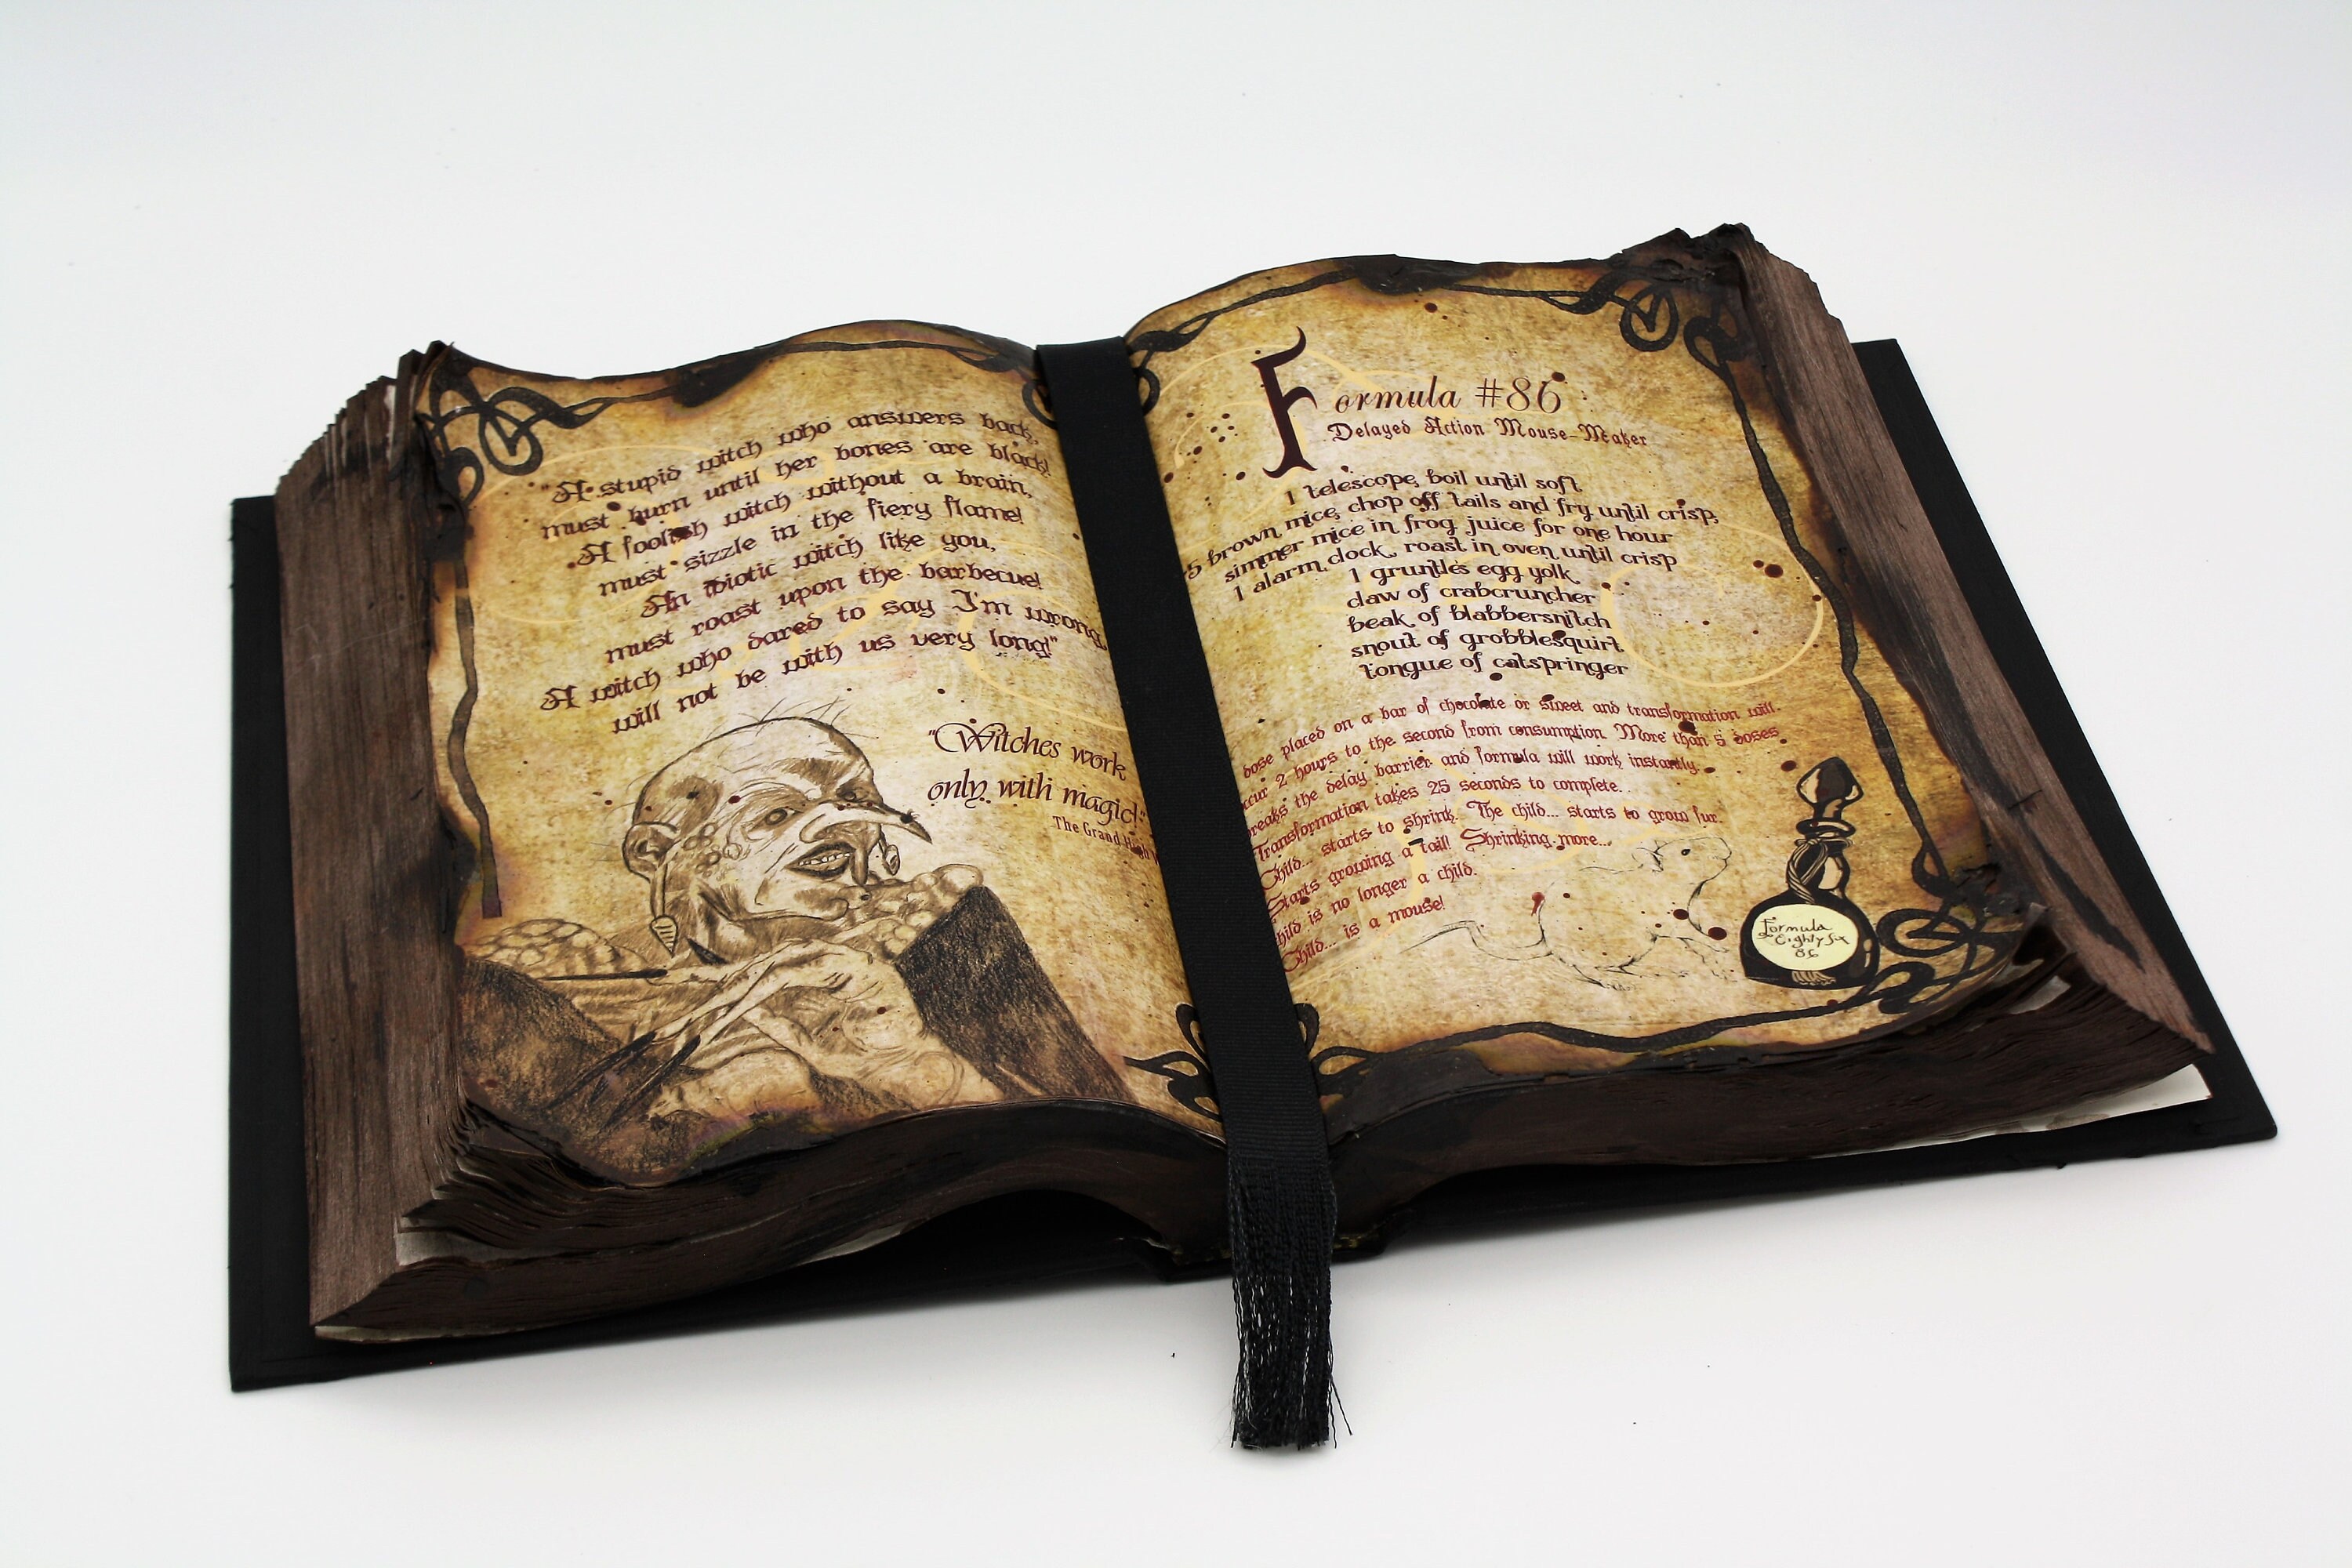 "A stupid witch who answers back,
must burn until her bones are black!
A foolish witch without a brain,
must sizzle in the fiery flame!
An idiotic witch like you,
must roast upon the barbecue!
A witch who dared to say I'm wrong,
will not be with us very long!"
"Witches work
only with magic!"
The Grand High
Formula #86
Delayed Action Mouse-Maker
1 telescope, boil until soft,
5 brown mice, chop off tails and fry until crisp,
simmer mice in frog juice for one hour
1 alarm clock, roast in oven until crisp
1 gruntles egg yolk,
claw of crabcruncher
beak of blabbersnitch
snout of grobblesquirt
tongue of catspringer
dose placed on a bar of chocolate or sweet and transformation will
2 hours to the second from consumption. More than 5 doses
breaks the delay barrier and formula will work instantly.
Transformation takes 25 seconds to complete.
Child... starts to shrink. The child... starts to grow fur.
Starts growing a tail! Shrinking more...
Child is no longer a child.
Child... is a mouse!
Formula
Eighty Six
86